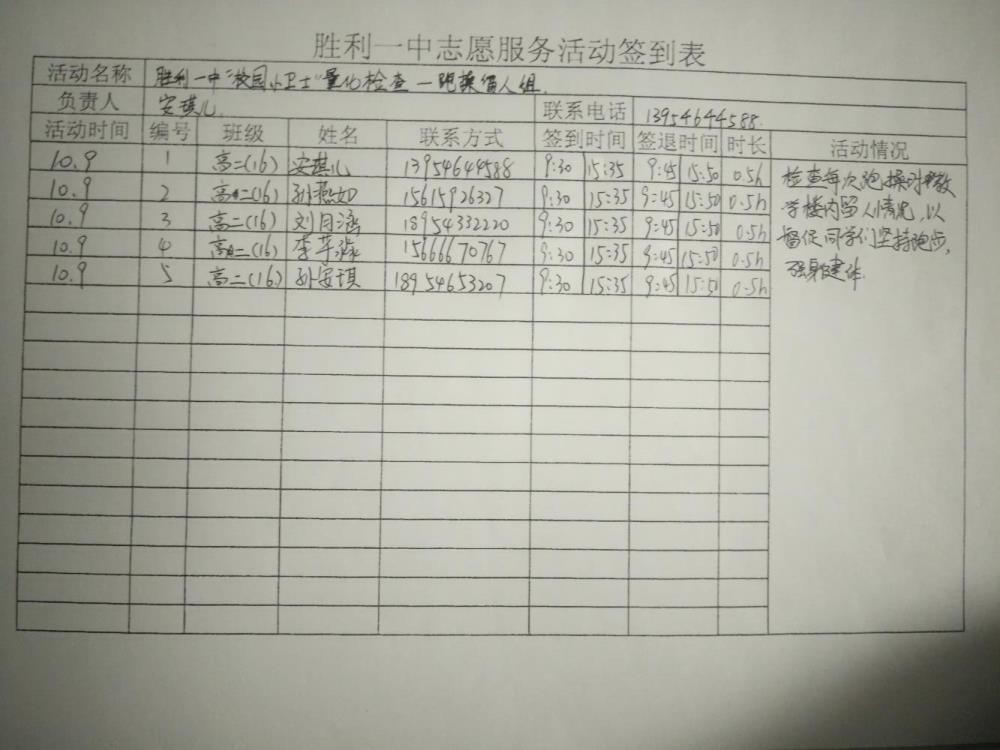 胜利一中志愿服务活动签到表
活动名称 胜利一中"校园小卫士"量化检查—跑操留人组
负责人 安琪儿 联系电话 13954644588
活动时间 编号 班级 姓名 联系方式 签到时间 签退时间 时长 活动情况
10.9 1 高二(16) 安琪儿 13954644588 9:30 15:35 9:45 15:50 0.5h
10.9 2 高二(16) 孙燕如 15615926327 9:30 15:35 9:45 15:50 0.5h
10.9 3 高二(16) 刘月涵 18954332220 9:30 15:35 9:45 15:50 0.5h
10.9 4 高二(16) 李 15666670767 9:30 15:35 9:45 15:50 0.5h
10.9 5 高二(16) 孙安琪 18954653207 9:30 15:35 9:45 15:50 0.5h
检查每次跑操时教
学楼内留人情况,以
督促同学们坚持跑步,
强身健体.